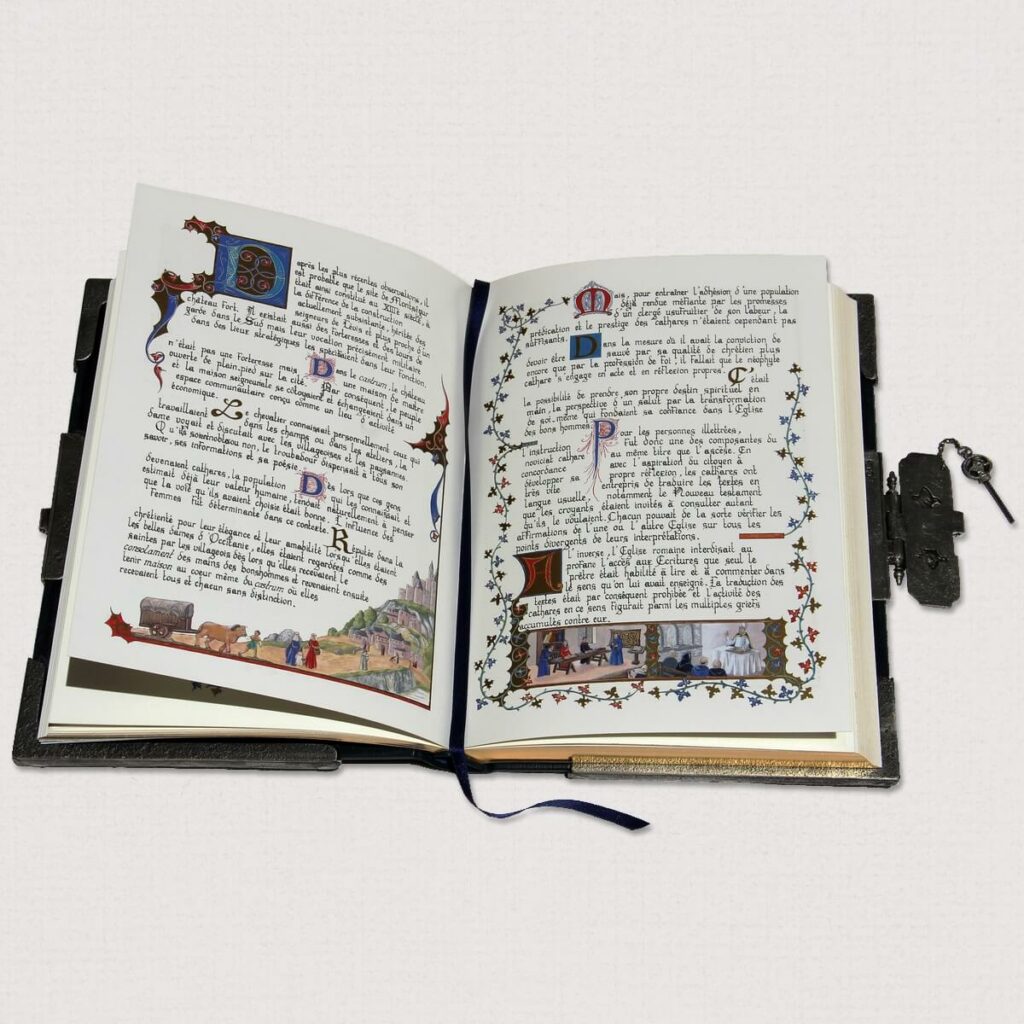 D'après les plus récentes observations, il
est probable que le site de Montségur
était ainsi constitué au XIIIe siècle, à
la différence de la construction
actuellement subsistante, héritée des
seigneurs de Lévis et plus proche d'un
château fort. Il existait aussi des forteresses et des tours de
garde dans le Sud mais leur vocation précisément militaire
dans des lieux stratégiques les spécifiaient dans leur fonction.
Dans le castrum, le château
n'était pas une forteresse mais une maison de maître
ouverte de plain-pied sur la cité. Par conséquent, le peuple
et la maison seigneuriale se côtoyaient et échangeaient dans un
espace communautaire conçu comme un lieu d'activité
économique.
Le chevalier connaissait personnellement ceux qui
travaillaient dans les champs ou dans les ateliers, la
dame voyait et discutait avec les villageoises et les paysannes
Qu'ils soient nobles ou non, le troubadour dispensait à tous son
savoir, ses informations et sa poésie.
Dès lors que ces gens
devenaient cathares, la population qui les connaissait et
estimait déjà leur valeur humaine, tendait naturellement à penser
que la voie qu'ils avaient choisie était bonne. L'influence des
femmes fut déterminante dans ce contexte.
Réputée dans la
chrétienté pour leur élégance et leur amabilité lorsqu'elles étaient
les belles dames d'Occitanie, elles étaient regardées comme des
saintes par les villageois dès lors qu'elles recevaient le
consolament des mains des bonshommes et revenaient ensuite
tenir maison au coeur même du castrum où elles
recevaient tous et chacun sans distinction.
Mais, pour entraîner l'adhésion d'une population
déjà rendue méfiante par les promesses
d'un clergé usufruitier de son labeur, la
prédication et le prestige des cathares n'étaient cependant pas
suffisants.
Dans la mesure où il avait la conviction de
devoir être sauvé par sa qualité de chrétien plus
encore que par la profession de foi, il fallait que le néophyte
cathare s'engage en acte et en réflexion propres.
C'était
la possibilité de prendre son propre destin spirituel en
main, la perspective d'un salut par la transformation
de soi-même qui fondaient sa confiance dans l'Eglise
des bons hommes.
Pour les personnes illettrées,
l'instruction fut donc une des composantes du
noviciat cathare au même titre que l'ascèse. En
concordance avec l'aspiration du citoyen à
développer sa propre réflexion, les cathares ont
très vite entrepris de traduire les textes en
langue usuelle, notamment le Nouveau testament
que les croyants étaient invités à consulter autant
qu'ils le voulaient. Chacun pouvait de la sorte vérifier les
affirmations de l'une ou l'autre Eglise sur tous les
points divergents de leurs interprétations.
A l'inverse, l'Eglise romaine interdisait au
profane l'accès aux Ecritures que seul le
prêtre était habilité à lire et à commenter dans
le sens qu'on lui avait enseigné. La traduction des
textes était par conséquent prohibée et l'activité des
cathares en ce sens figurait parmi les multiples griefs
accumulés contre eux.